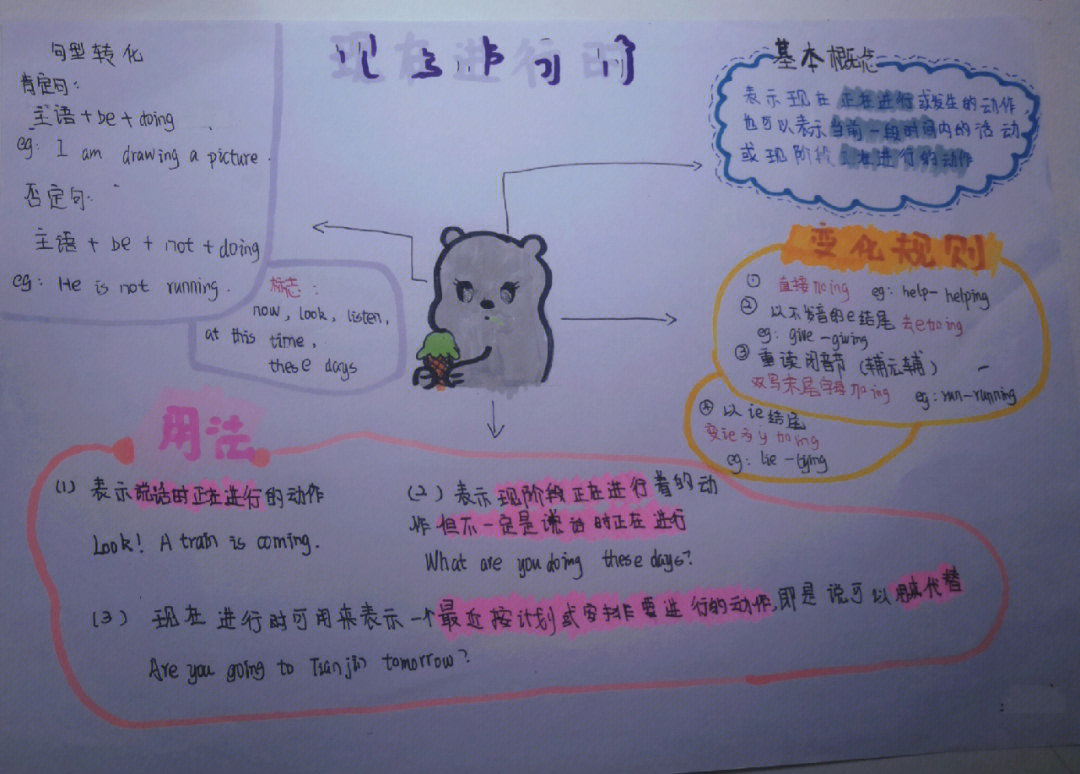 现在进行时
句型转化
肯定句:
主语+be+doing
eg: I am drawing a picture.
否定句:
主语 + be + not + doing
eg: He is not running.
标志:
now, look, listen,
at this time,
these days
基本概念
表示现在正在进行或发生的动作
也可以表示当前一段时间内的活动
或现阶段正在进行的动作
变化规则
① 直接加ing eg: help-helping
② 以不发音的e结尾去e加ing
eg: give-giving
③ 重读闭音节 (辅元辅)
双写末尾字母加ing eg: run-running
④ 以ie结尾
变ie为y加ing
eg: lie-lying
用法
(1) 表示说话时正在进行的动作
Look! A train is coming.
(2) 表示现阶段正在进行着的动
作但不一定是说话时正在进行
What are you doing these days?
(3) 现在进行时可用来表示一个最近按计划或安排要进行的动作,即是说可以用来代替
Are you going to Tianjin tomorrow?